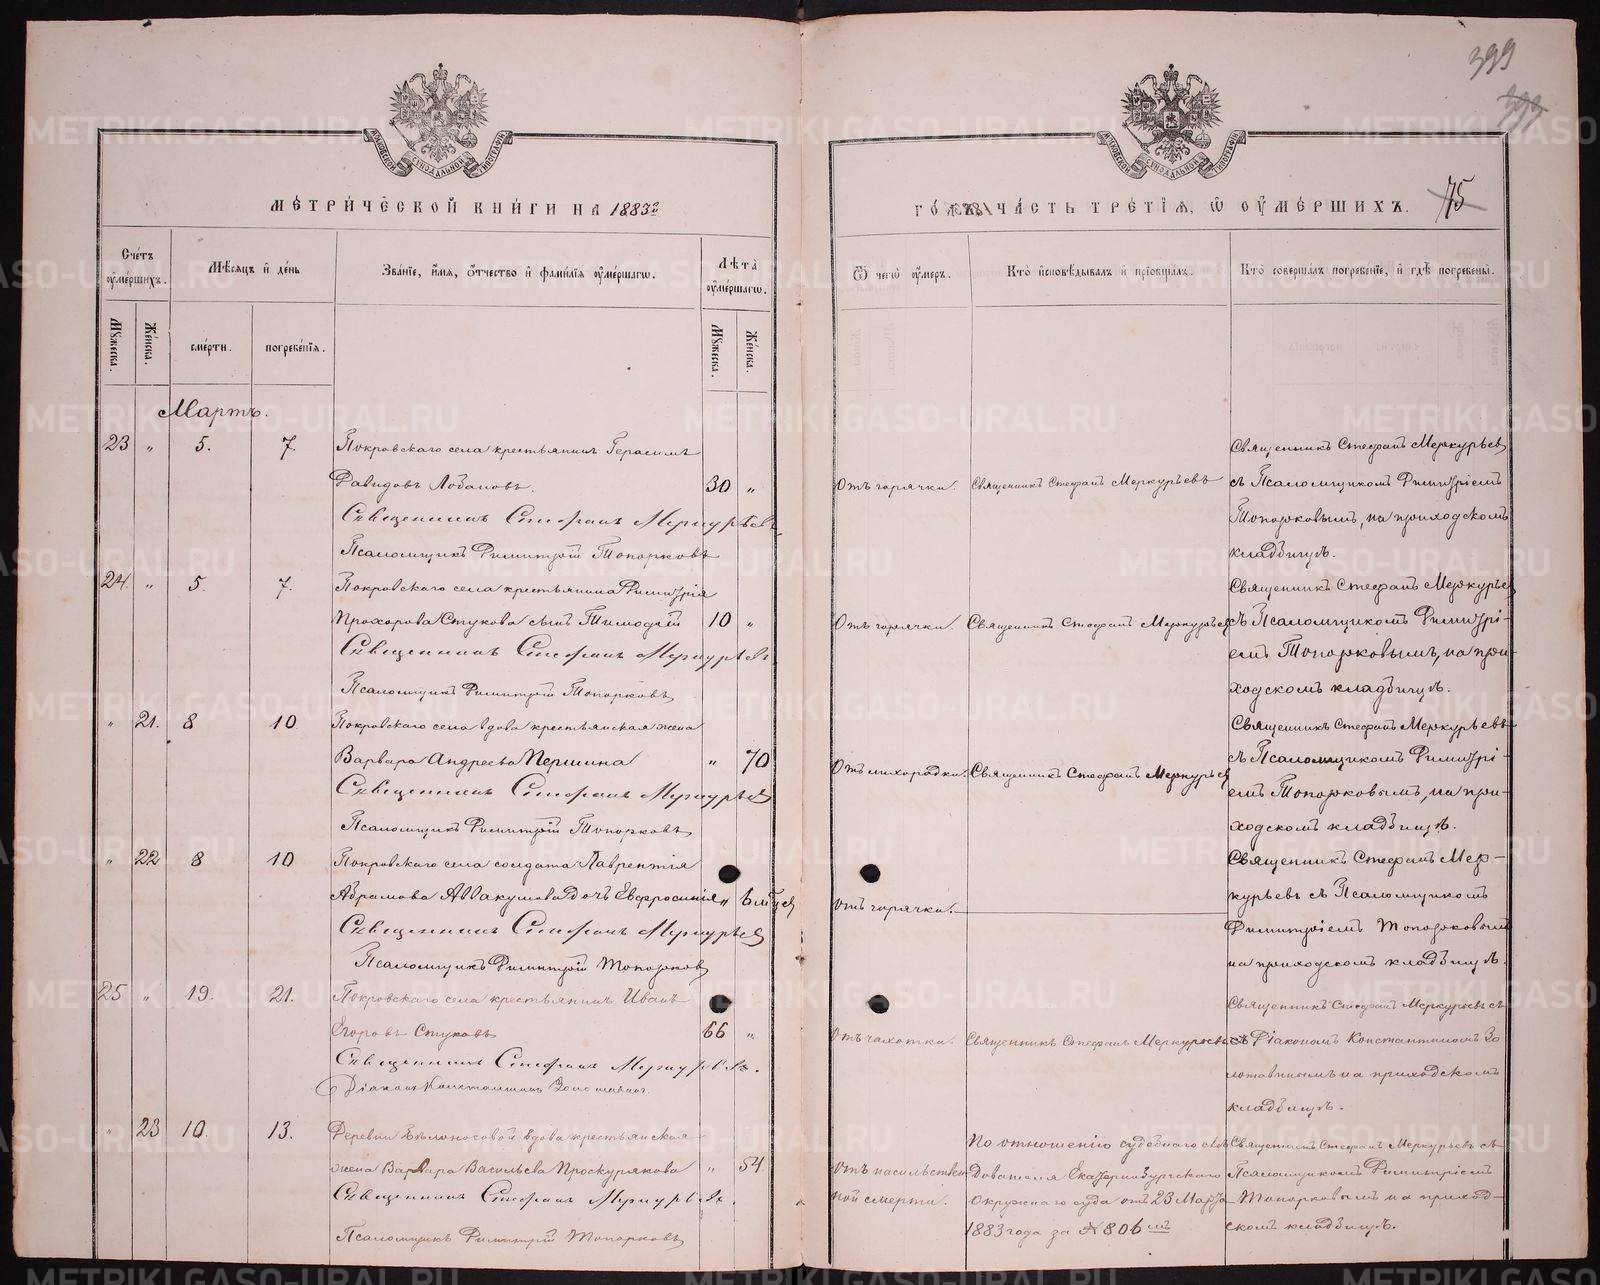 399
393
75
МОСКОВСКОЙ СѴНОДАЛЬНОЙ ТИПОГРАФІИ
МОСКОВСКОЙ СѴНОДАЛЬНОЙ ТИПОГРАФІИ
МЕТРИЧЕСКОЙ КНИГИ НА 1883й
ГОДЪ, ЧАСТЬ ТРЕТІЯ, Ѿ ОУМЕРШИХЪ.
Счетъ оумершихъ.
Мѣсяцъ и день
Званіе, имя, отчество и фамилія оумершагѡ.
Лѣта оумершагѡ.
Ѿ чегѡ оумеръ.
Кто исповѣдывалъ и пріобщалъ.
Кто совершалъ погребеніе, и гдѣ погребены.
Мꙋжеска.
Женска.
смерти.
погребенія.
Мꙋжеска.
Женска.
Мартъ.
23 " 5. 7. Покровскаго села крестьянинъ Герасимъ
Давидовъ Лобановъ. 30 "
Священникъ Стефанъ Меркурьевъ
Псаломщикъ Димитрій Топорковъ
Отъ горячки. Священникъ Стефанъ Меркурьевъ
Священникъ Стефанъ Меркурьевъ
съ Псаломщикомъ Димитріемъ
Топорковымъ, на приходскомъ
кладбищѣ.
24. " 5. 7. Покровскаго села крестьянина Димитрія
Прохорова Стукова сынъ Тимофей 10 "
Священникъ Стефанъ Меркурьевъ
Псаломщикъ Димитрій Топорковъ
Отъ горячки. Священникъ Стефанъ Меркурьевъ
Священникъ Стефанъ Меркурьевъ
съ Псаломщикомъ Димитрі-
емъ Топорковымъ, на при-
ходскомъ кладбищѣ.
" 21. 8 10 Покровскаго села вдова крестьянская жена
Варвара Андреева Першина " 70
Священникъ Стефанъ Меркурьевъ
Псаломщикъ Димитрій Топорковъ
Отъ лихорадки. Священникъ Стефанъ Меркурьевъ
Священникъ Стефанъ Меркурьевъ
съ Псаломщикомъ Димитрі-
емъ Топорковымъ, на при-
ходскомъ кладбищѣ.
" 22 8 10 Покровскаго села солдата Лаврентія
Абрамова Аввакумова дочь Евфросинія "
Священникъ Стефанъ Меркурьевъ
Псаломщикъ Димитрій Топорковъ
отъ горячки.
Священникъ Стефанъ Мер-
курьевъ съ Псаломщикомъ
Димитріемъ Топорковымъ
на приходскомъ кладбищѣ.
25 " 19. 21. Покровскаго села крестьянинъ Иванъ
Егоровъ Стуковъ 66 "
Священникъ Стефанъ Меркурьевъ.
Діаконъ Константинъ
Отъ чахотки. Священникъ Стефанъ Меркурьевъ
Священникъ Стефанъ Меркурьевъ съ
Діакономъ Константиномъ
на приходскомъ
кладбищѣ.
" 23 10. 13. Деревни Бѣлоносовой вдова крестьянская
жена Варвара Васильева Проскурякова " 54.
Священникъ Стефанъ Меркурьевъ.
Псаломщикъ Димитрій Топорковъ
Отъ насильствен
ной смерти.
По отношенію судебнаго слѣ
дователя Екатеринбургскаго
Окружнаго суда отъ 23 Марта
1883 года за № 806 мъ
Священникъ Стефанъ Меркурьевъ съ
Псаломщикомъ Димитріемъ
Топорковымъ на приход-
скомъ кладбищѣ.
METRIKI.GASO-URAL.RU